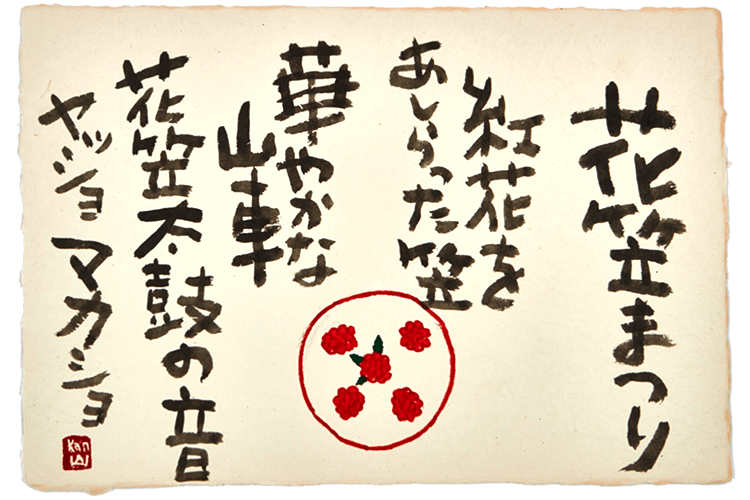 花笠まつり
紅花を
あしらった笠
華やかな
山車
花笠太鼓の音
ヤッショ マカショ
Kan